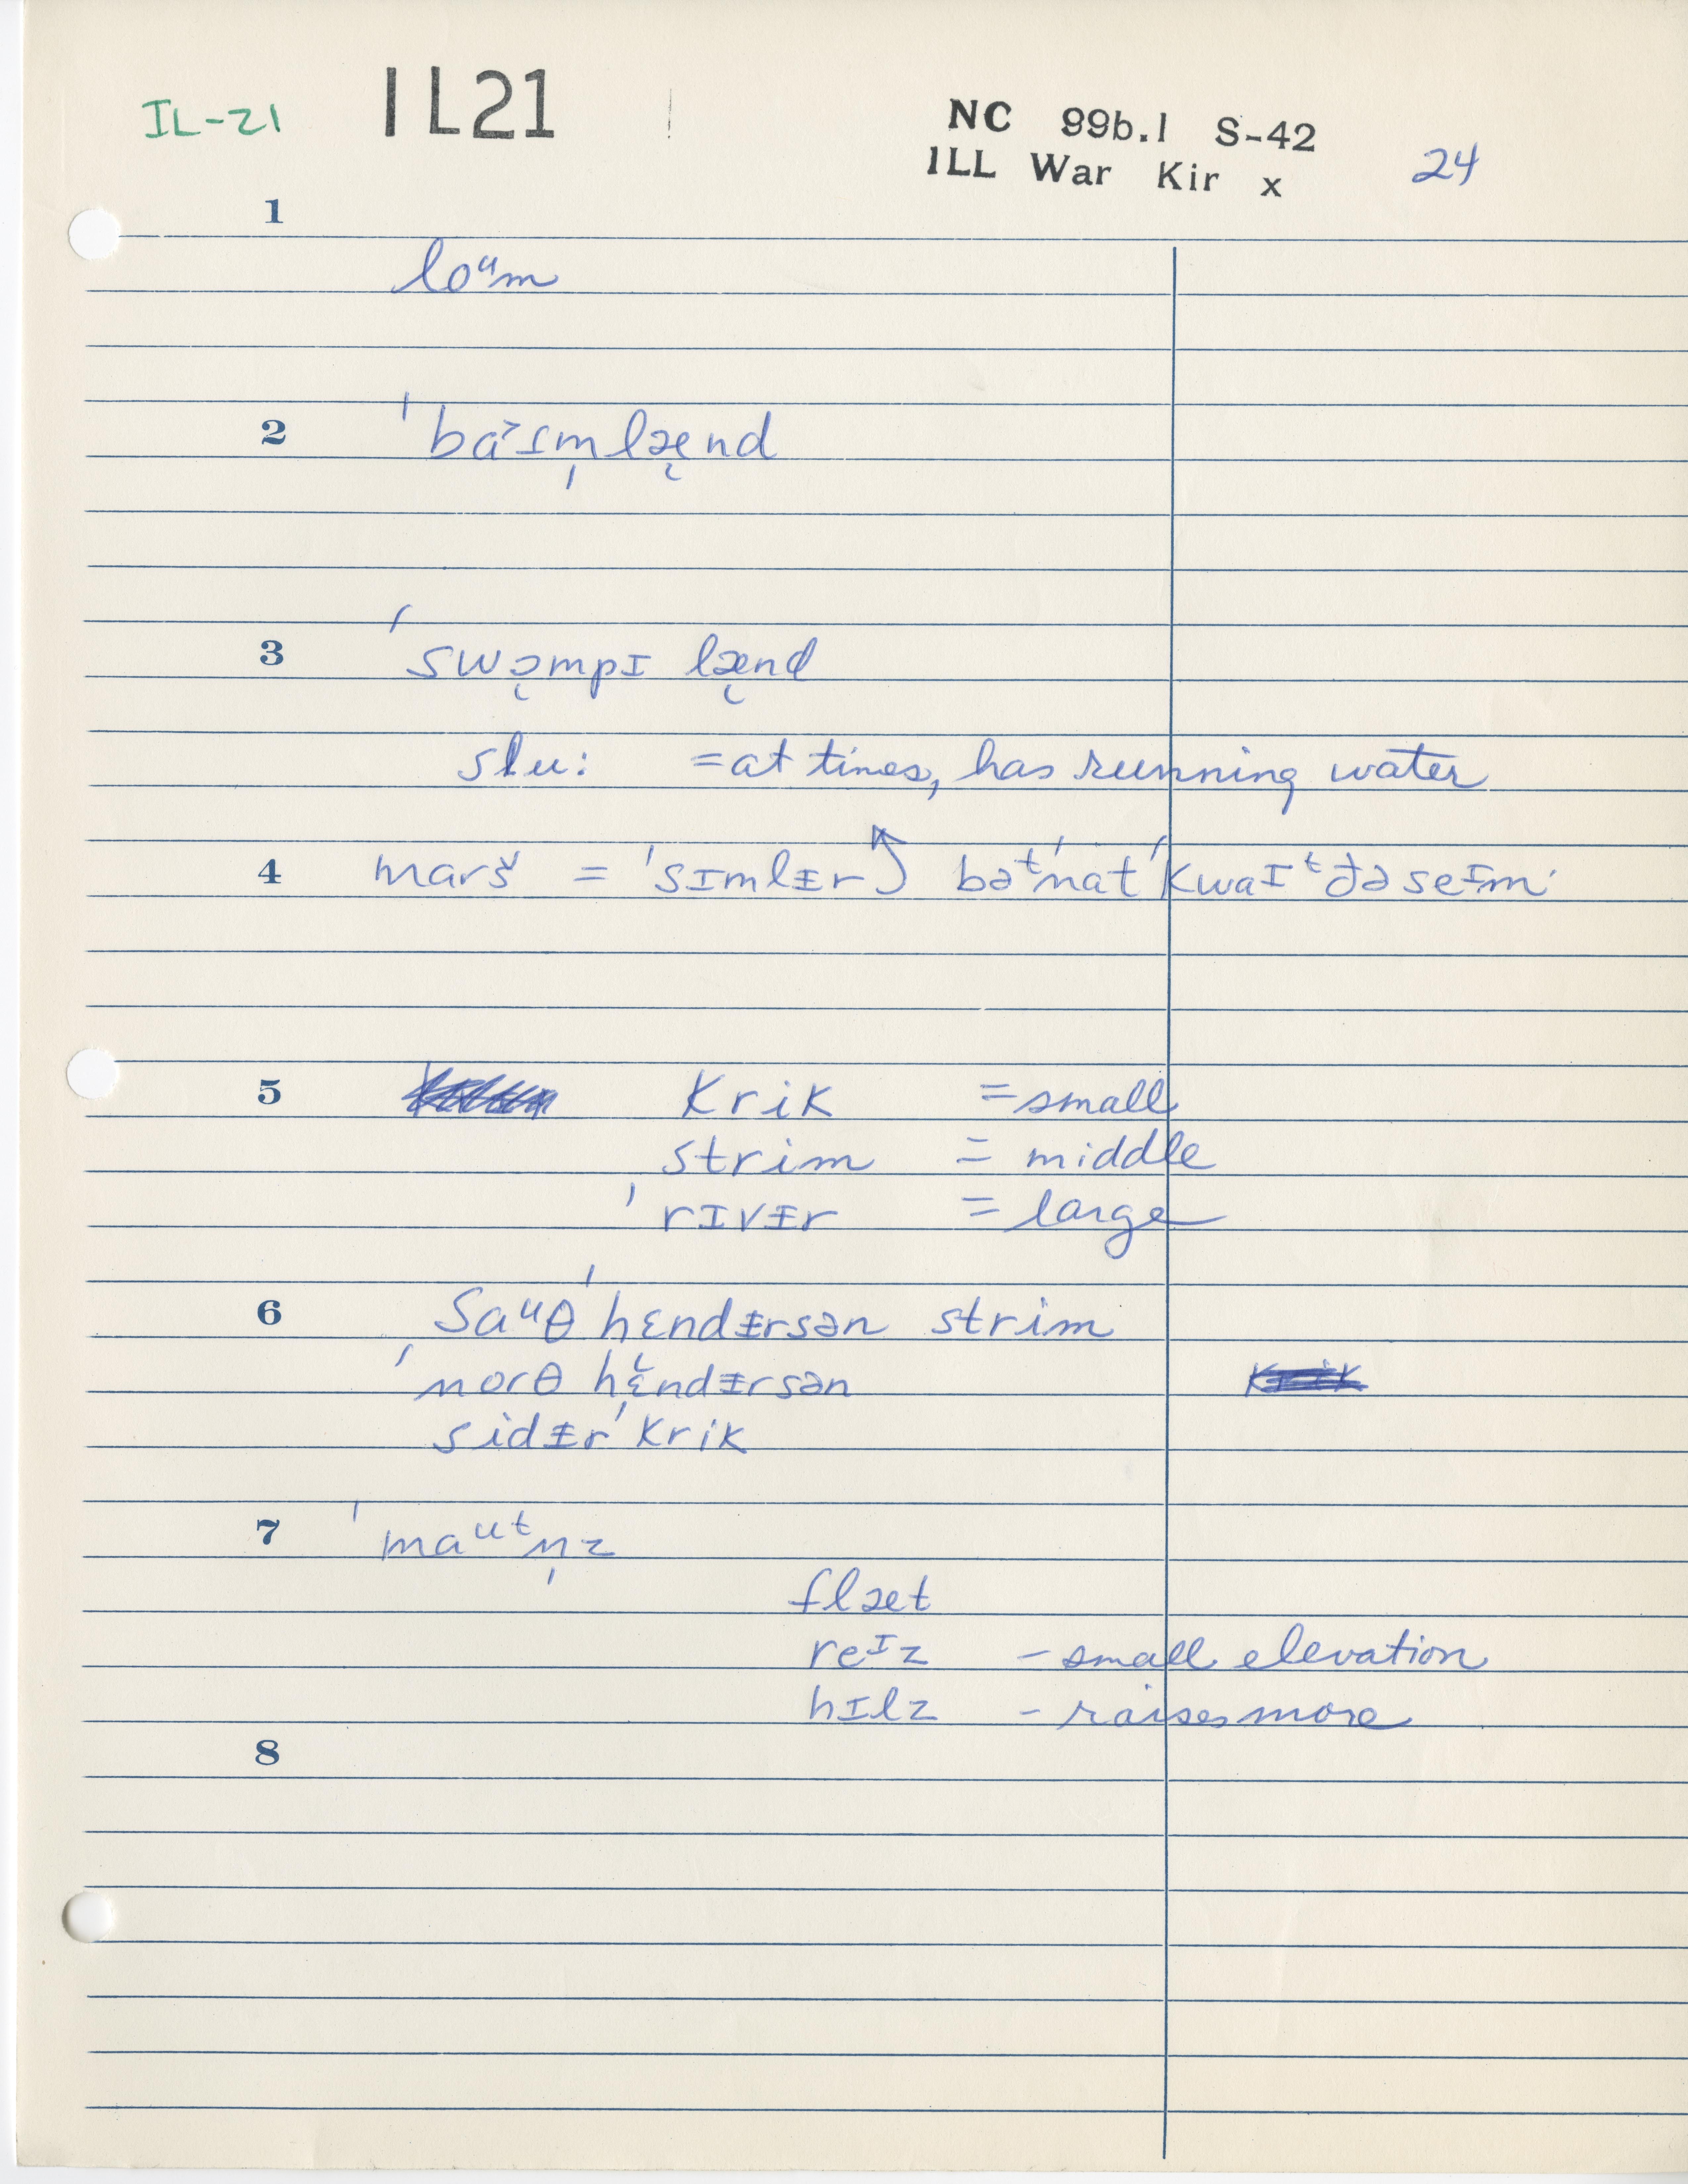 IL-21 IL21 NC 99b.1 S-42
ILL War Kir x 24
1
loᵘm
2 ˈba˃ɪm̩læ̨nd
3 ˈswɔ̨mpɪ læ̨nd
slu: = at times, has running water
4 marš = ˈsɪmlɪ̵r bəᵗˈnatˈkwaɪᵗ ðə seɪm
5 krik = small
strim = middle
ˈrɪvɪ̵r = large
6 Saᵘθˈhɛndɪ̵rsən strim
ˈnorθ hɛndɪ̵rsən
sidɪ̵rˈkrik
7 ˈmaᵘᵗn̩z
flæt
reᶦz – small elevation
hɪlz – raises more
8